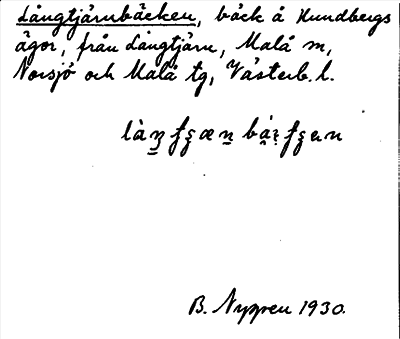 Långtjärnbäcken, bäck å Hundbergs
ägor, från Långtjärn, Malå m,
Norsjö och Malå tg, Västerb. l.
B. Nygren 1930.